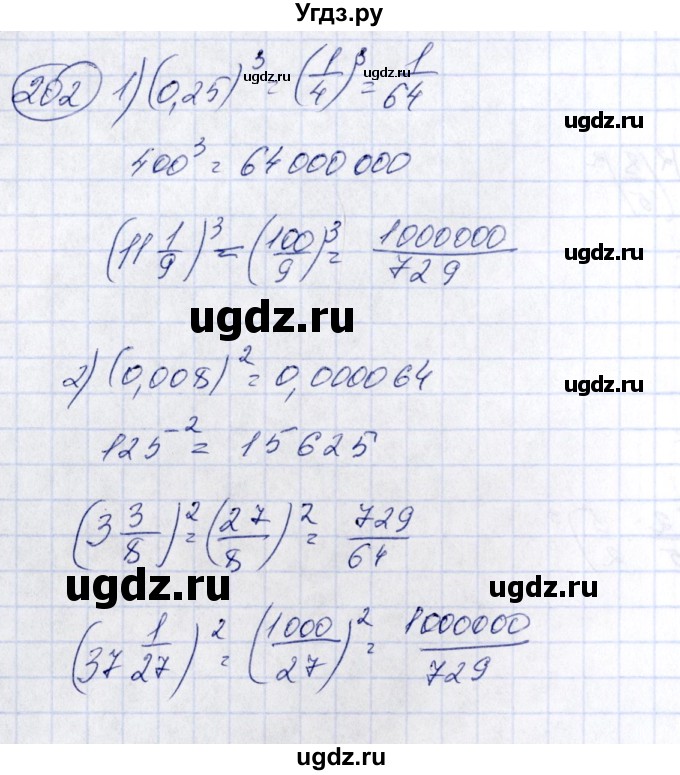 Угдз.ру
202 1) (0,25)^3 = (1/4)^3 = 1/64
ugdz.ru ugdz.ru ugdz.ru
400^3 = 64 000 000
ugdz.ru
(11 1/9)^3 = (100/9)^3 = 1000000/729
ugdz.ru
ugdz.ru
2) (0,008)^2 = 0,000064
ugdz.ru
125^-2 = 15625
(3 3/8)^2 = (27/8)^2 = 729/64
ugdz.ru ugdz.ru
(37 1/27)^2 = (1000/27)^2 = 1000000/729
ugdz.ru